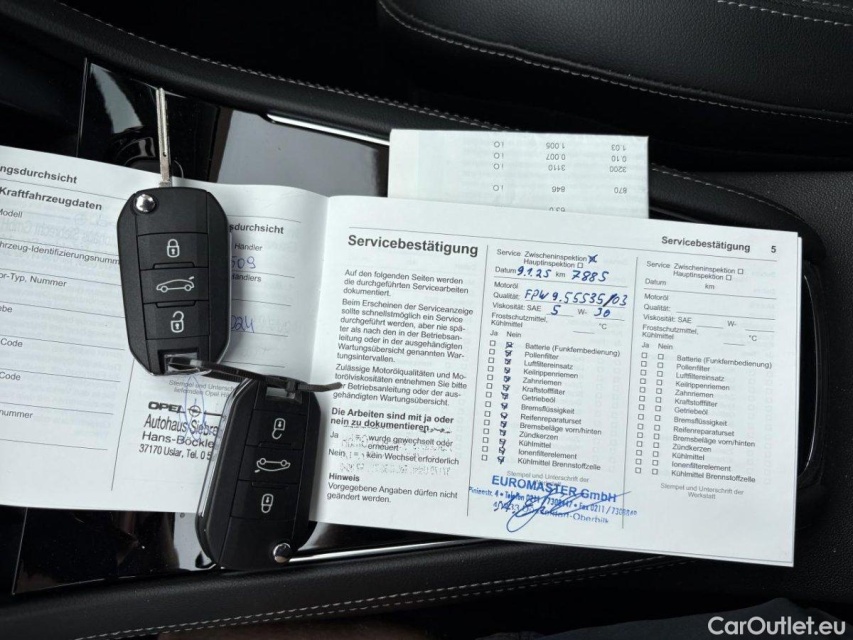 ngsdurchsicht
Kraftfahrzeugdaten
Modell
hrzeug-Identifizierungsnumm
or-Typ, Nummer
Code
Code
nummer
sdurchsicht
Händler
Händlers
OPEL
Autohaus Siebre
Hans-Böckle
37170 Uslar, Tel. 0 5
1.03 1.005 I.O
0.10 0.007 I.O
3200 3110 I.O
870 846 I.O
Servicebestätigung
Auf den folgenden Seiten werden
die durchgeführten Servicearbeiten
dokumentiert.
Beim Erscheinen der Serviceanzeige
sollte schnellstmöglich ein Service
durchgeführt werden, aber nie spä-
ter als nach den in der Betriebsan-
leitung oder in der ausgehändigten
Wartungsübersicht genannten War-
tungsintervallen.
Zulässige Motorölqualitäten und Mo-
torölviskositäten entnehmen Sie bitte
der Betriebsanleitung oder der aus-
gehändigten Wartungsübersicht.
Die Arbeiten sind mit ja oder
nein zu dokumentieren
Ja wurde gewechselt oder
erneuert
Nein, kein Wechsel erforderlich
Hinweis
Vorgegebene Angaben dürfen nicht
geändert werden.
Service: Zwischeninspektion X
Hauptinspektion ☐
Datum 9.1.25 km 7885
Motoröl
Qualität: FPW 9.55535/03
Viskosität: SAE 5 W- 30
Frostschutzmittel,
Kühlmittel °C
Ja Nein
Batterie (Funkfernbedienung)
Pollenfilter
Luftfiltereinsatz
Keilrippenriemen
Zahnriemen
Kraftstofffilter
Getriebeöl
Bremsflüssigkeit
Reifenreparaturset
Bremsbeläge vorn/hinten
Zündkerzen
Kühlmittel
Ionenfilterelement
Kühlmittel Brennstoffzelle
Stempel und Unterschrift der
EUROMASTER GmbH
Servicebestätigung 5
Service: Zwischeninspektion ☐
Hauptinspektion ☐
Datum km
Motoröl
Qualität:
Viskosität: SAE W-
Frostschutzmittel,
Kühlmittel °C
Ja Nein
Batterie (Funkfernbedienung)
Pollenfilter
Luftfiltereinsatz
Keilrippenriemen
Zahnriemen
Kraftstofffilter
Getriebeöl
Bremsflüssigkeit
Reifenreparaturset
Bremsbeläge vorn/hinten
Zündkerzen
Kühlmittel
Ionenfilterelement
Kühlmittel Brennstoffzelle
Stempel und Unterschrift der
Werkstatt
CarOutlet.eu